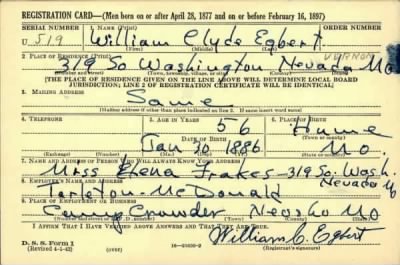 REGISTRATION CARD—(Men born on or after April 28, 1877 and on or before February 16, 1897)
SERIAL NUMBER 1. NAME (Print)
U 519 William Clyde Egbert
(First) (Middle) (Last)
2. PLACE OF RESIDENCE (Print) VERNON
319 So. Washington Nevada Mo
(Number and street) (Town, township, village, or city) (County) (State)
[THE PLACE OF RESIDENCE GIVEN ON THE LINE ABOVE WILL DETERMINE LOCAL BOARD
JURISDICTION; LINE 2 OF REGISTRATION CERTIFICATE WILL BE IDENTICAL]
3. MAILING ADDRESS
Same
[Mailing address if other than place indicated on line 2. If same insert word same]
4. TELEPHONE 5. AGE IN YEARS 6. PLACE OF BIRTH
56 Hume
DATE OF BIRTH (Town or county)
Jan 30 1886 Mo.
(Exchange) (Number) (Mo.) (Day) (Yr.) (State or country)
7. NAME AND ADDRESS OF PERSON WHO WILL ALWAYS KNOW YOUR ADDRESS
Miss Elena Frakes - 319 So. Wash.
Nevada Mo
8. EMPLOYER'S NAME AND ADDRESS
Tarleton-McDonald
9. PLACE OF EMPLOYMENT OR BUSINESS
Camp Crowder Neosho Mo
(Number and street or R. F. D. number) (Town) (County) (State)
I AFFIRM THAT I HAVE VERIFIED ABOVE ANSWERS AND THAT THEY ARE TRUE.
D. S. S. Form 1
(Revised 4-1-42) (over) William C. Egbert
(Registrant's signature)